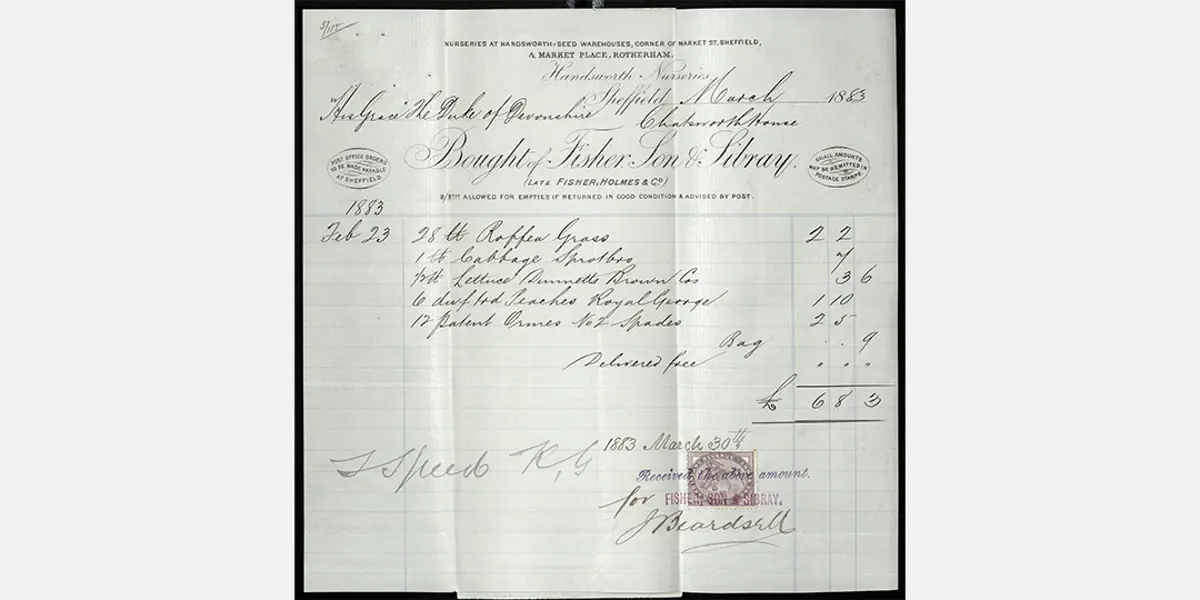 NURSERIES AT HANDSWORTH-SEED WAREHOUSES, CORNER OF MARKET ST. SHEFFIELD,
& MARKET PLACE, ROTHERHAM.
Handsworth Nurseries
Sheffield March 1883
His Grace The Duke of Devonshire
Chatsworth House
Bought of Fisher Son & Sibray.
(LATE FISHER, HOLMES & Co.)
POST OFFICE ORDERS
TO BE MADE PAYABLE
AT SHEFFIELD
SMALL AMOUNTS
MAY BE REMITTED IN
POSTAGE STAMPS
ALLOWED FOR EMPTIES IF RETURNED IN GOOD CONDITION & ADVISED BY POST.
1883
Feb 23 28 lb Roffea Grass 2 2
1 lb Cabbage 7
1/2 lb Lettuce Dunnetts Brown Cos 3 6
6 dwf trd Peaches Royal George 1 10
12 Patent Ormes No 2 Spades 2 5
Bag . . 9
Delivered free " " "
£ 6 8 3
1883 March 30th
Speed K,G
Received the above amount.
for FISHER, SON & SIBRAY.
J Beardsell